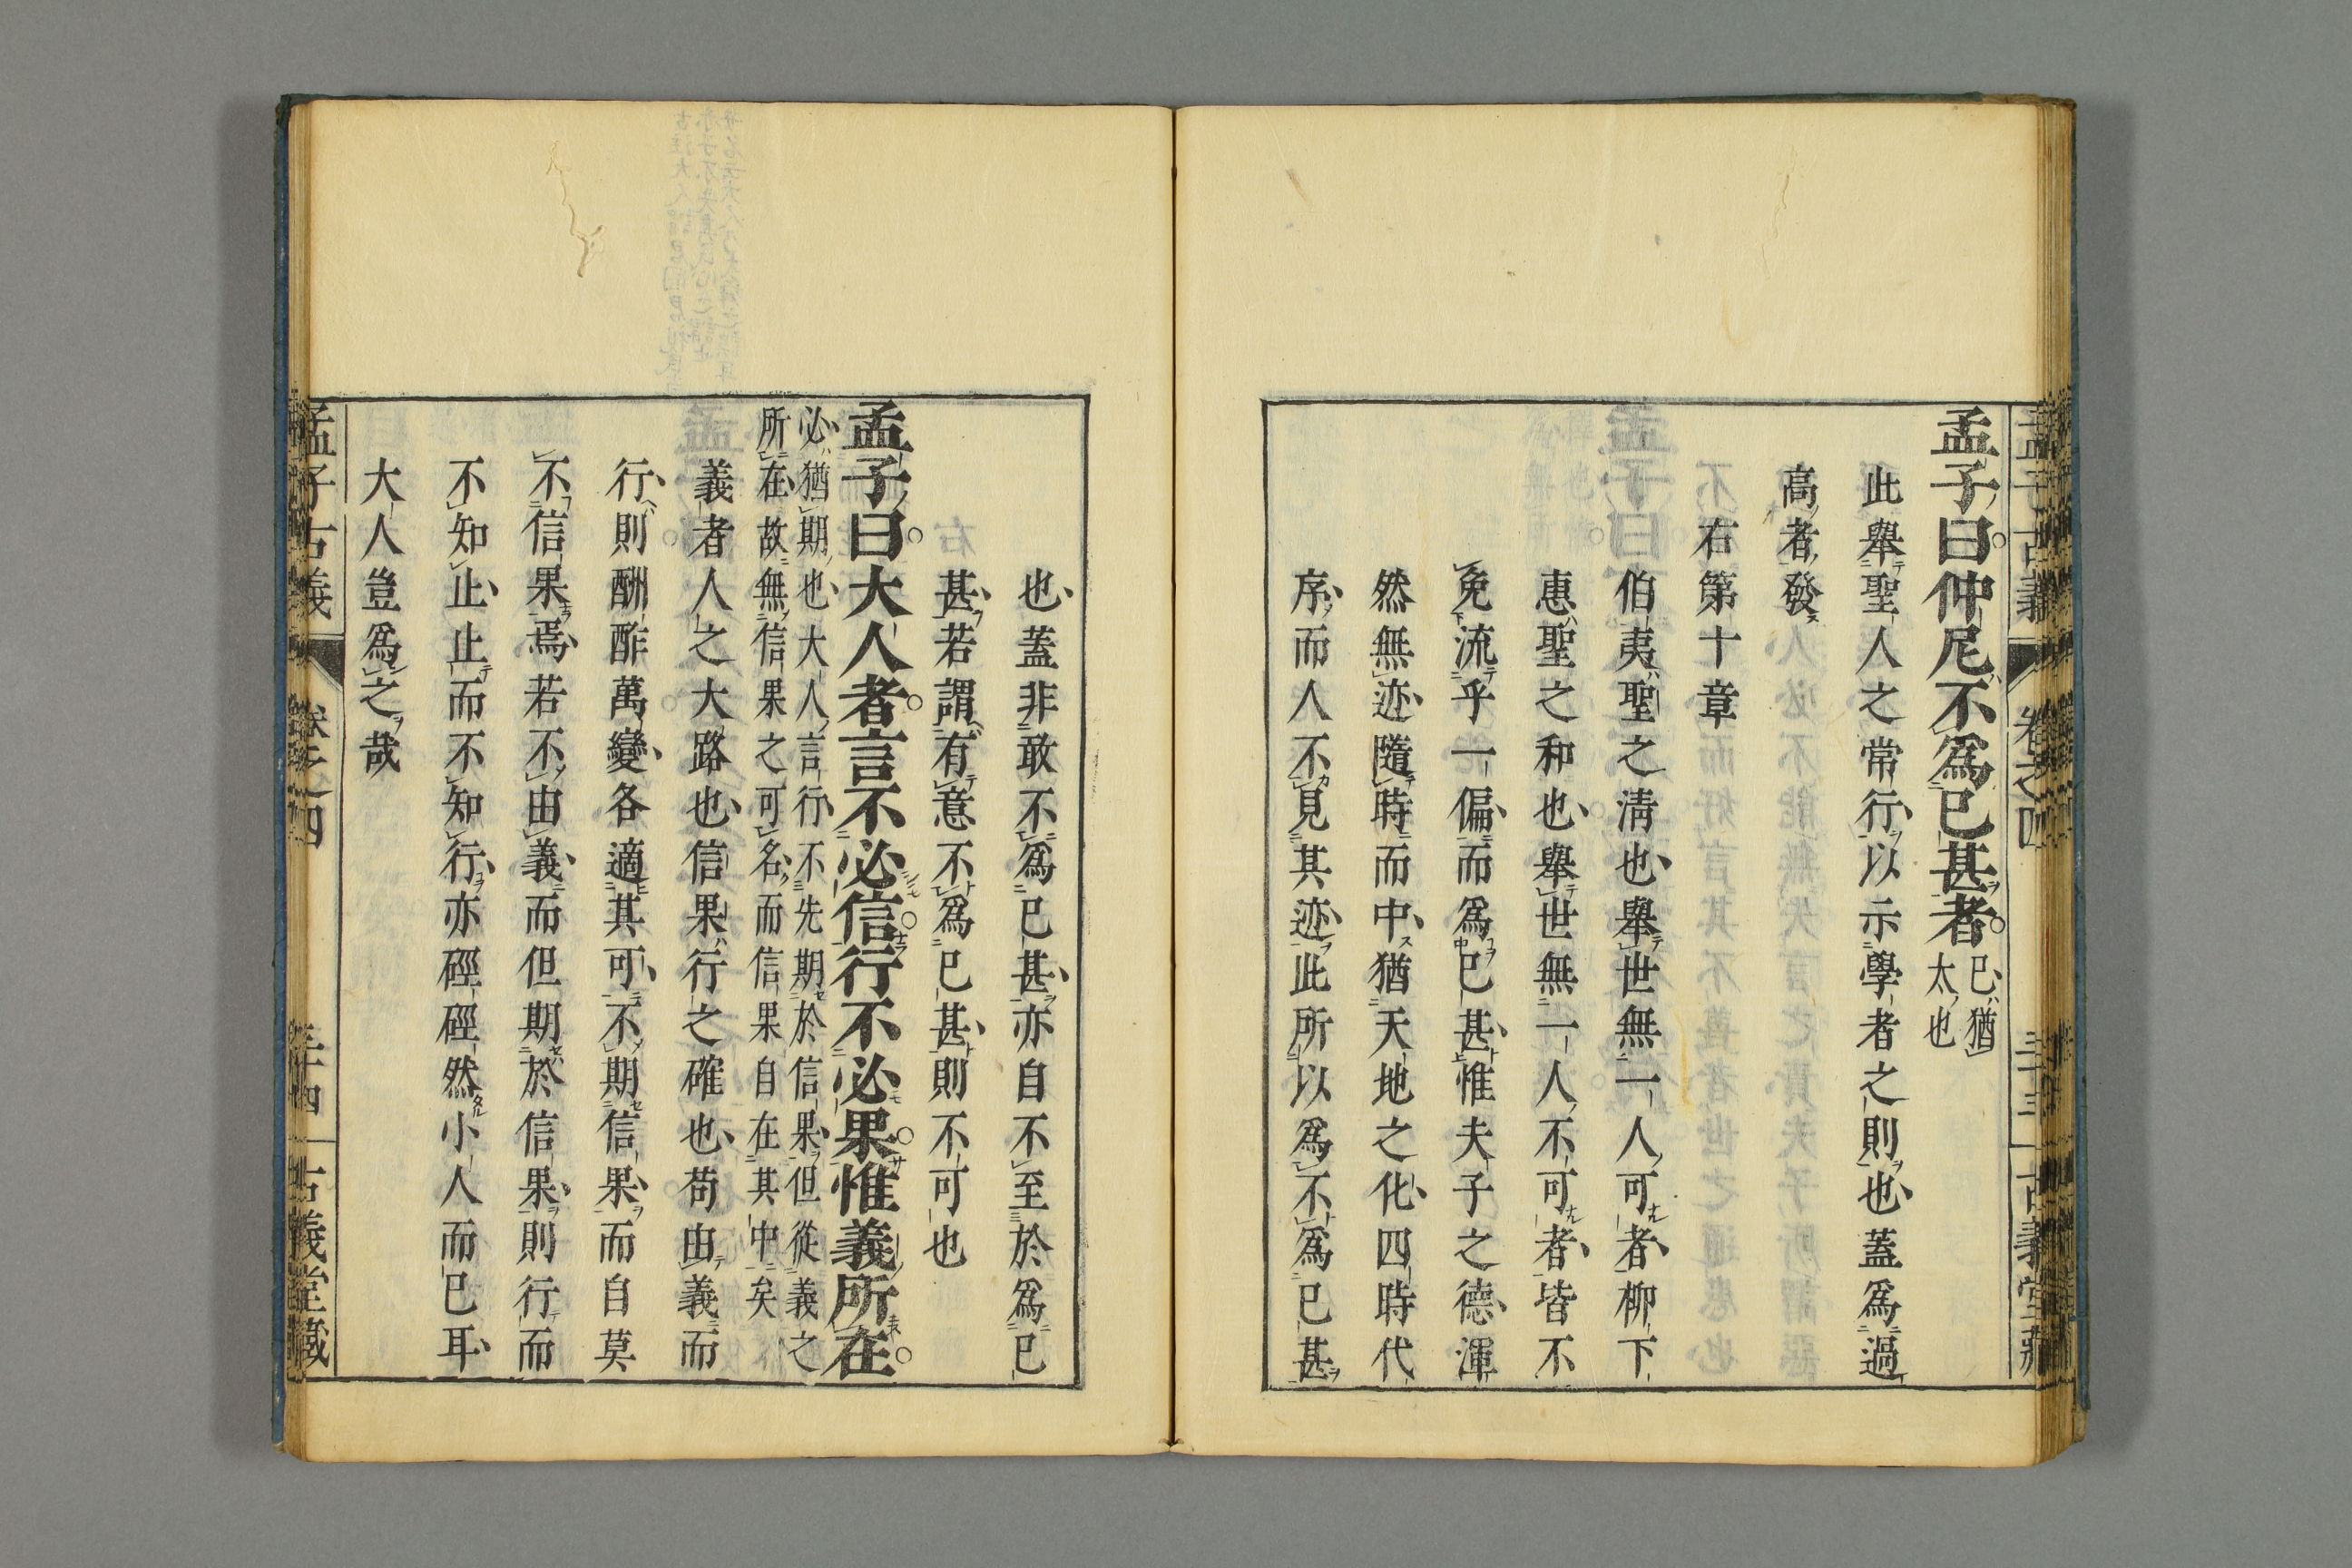 孟子曰仲尼不爲已甚者
已猶
太也
此舉聖人之常行以示學者之則也蓋爲過
高者發
右第十章
伯夷聖之淸也舉世無一人可者柳下
惠聖之和也舉世無一人不可者皆不
免流乎一偏而爲已甚惟夫子之德渾
然無迹隨時而中猶天地之化四時代
序而人不見其迹此所以爲不爲已甚
也蓋非敢不爲已甚亦自不至於爲已
甚若謂有意不爲已甚則不可也
孟子曰大人者言不必信行不必果惟義所在
必猶期也大人言行不先期於信果但從義之
所在故無信果之可名而信果自在其中矣
義者人之大路也信果行之確也苟由義而
行則酬酢萬變各適其可不期信果而自莫
不信果焉若不由義而但期於信果則行而
不知止止而不知行亦硜硜然小人而已耳
大人豈爲之哉
孟子古義
卷之四
三十四
古義堂藏